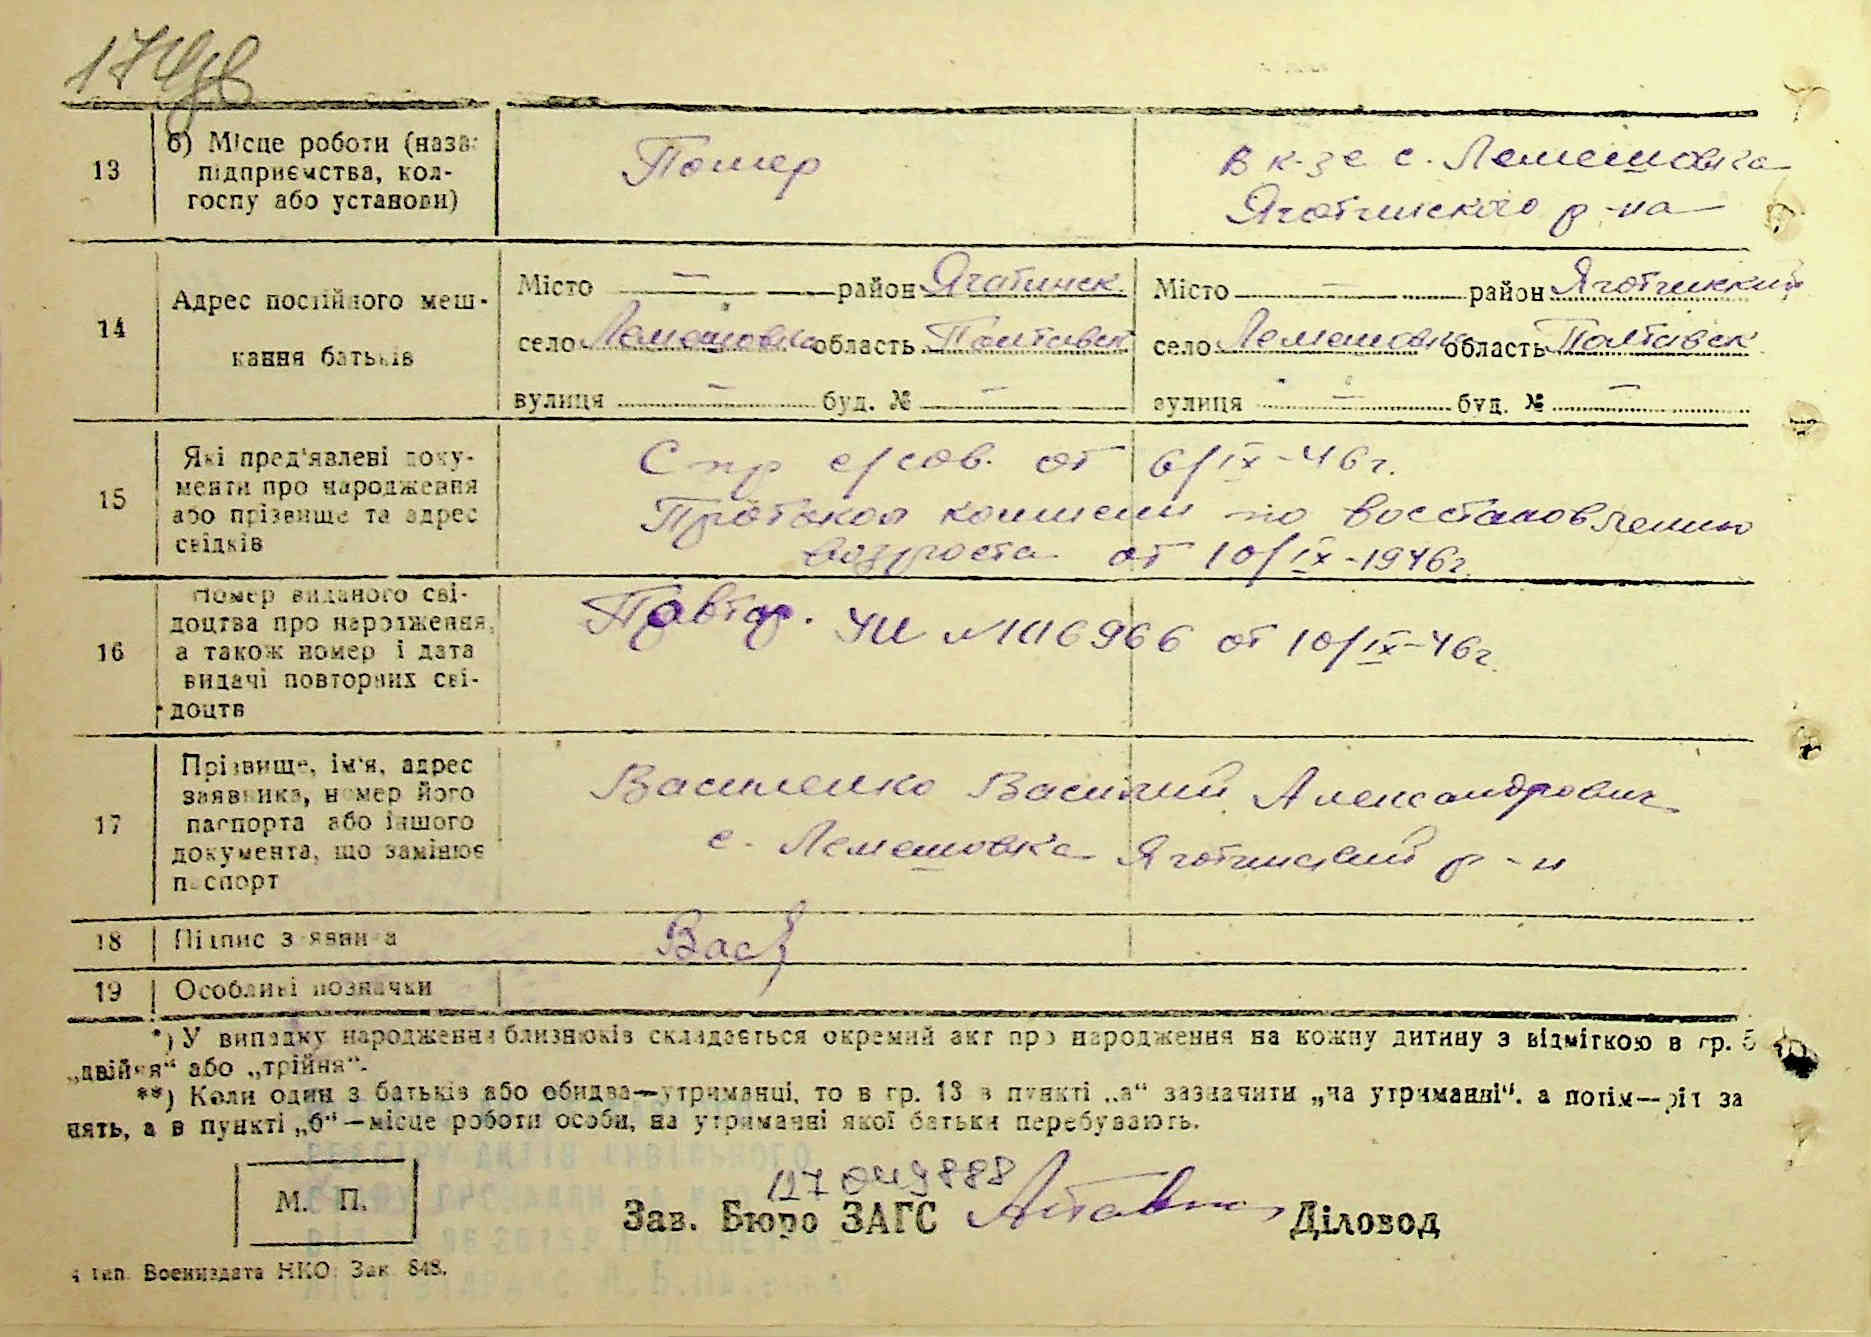 13 б) Місце роботи (назва підприємства, колгоспу або установи) Помер в к-зе с. Лемешовка
Яготинского р-на
14 Адрес постійного мешкання батьків
Місто — район Яготинск. Місто — район Яготинский
село Лемешовка область Полтавск село Лемешовка область Полтавск
вулиця — буд. № — вулиця — буд. № —
15 Які пред'явлені документи про народження або прізвище та адрес свідків
Спр с/сов. от 6/IX-46г.
Протокол комисии по восстановлению
возроста от 10/IX-1946г.
16 Номер виданого свідоцтва про народження, а також номер і дата видачі повторних свідоцтв
Повтор. УИ №116966 от 10/IX-46г.
17 Прізвище, ім'я, адрес заявника, номер його паспорта або іншого документа, що замінює паспорт
Василенко Василий Александрович
с. Лемешовка Яготинский р-н
18 Підпис заявника Вас
19 Особливі позначки
*) У випадку народження близнюків складається окремий акт про народження на кожну дитину з відміткою в гр. 5
„двійня“ або „трійня“.
**) Коли один з батьків або обидва—утриманці, то в гр. 13 в пункті „а“ зазначити „на утриманні“, а потім—рід за
нять, а в пункті „б“—місце роботи особи, на утриманні якої батьки перебувають.
М. П.
127 049888
Зав. Бюро ЗАГС Діловод
тип. Воениздата НКО. Зак. 848.